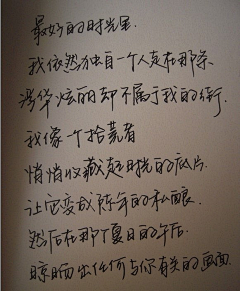 最好的时光里
我依然独自一个人走在那条
浮华炫丽却不属于我的街.
我像一个拾荒者
悄悄收藏起时光的底片
让它变成陈年的私酿.
然后在那个夏日的午后.
晾晒出任何与你有关的画面.